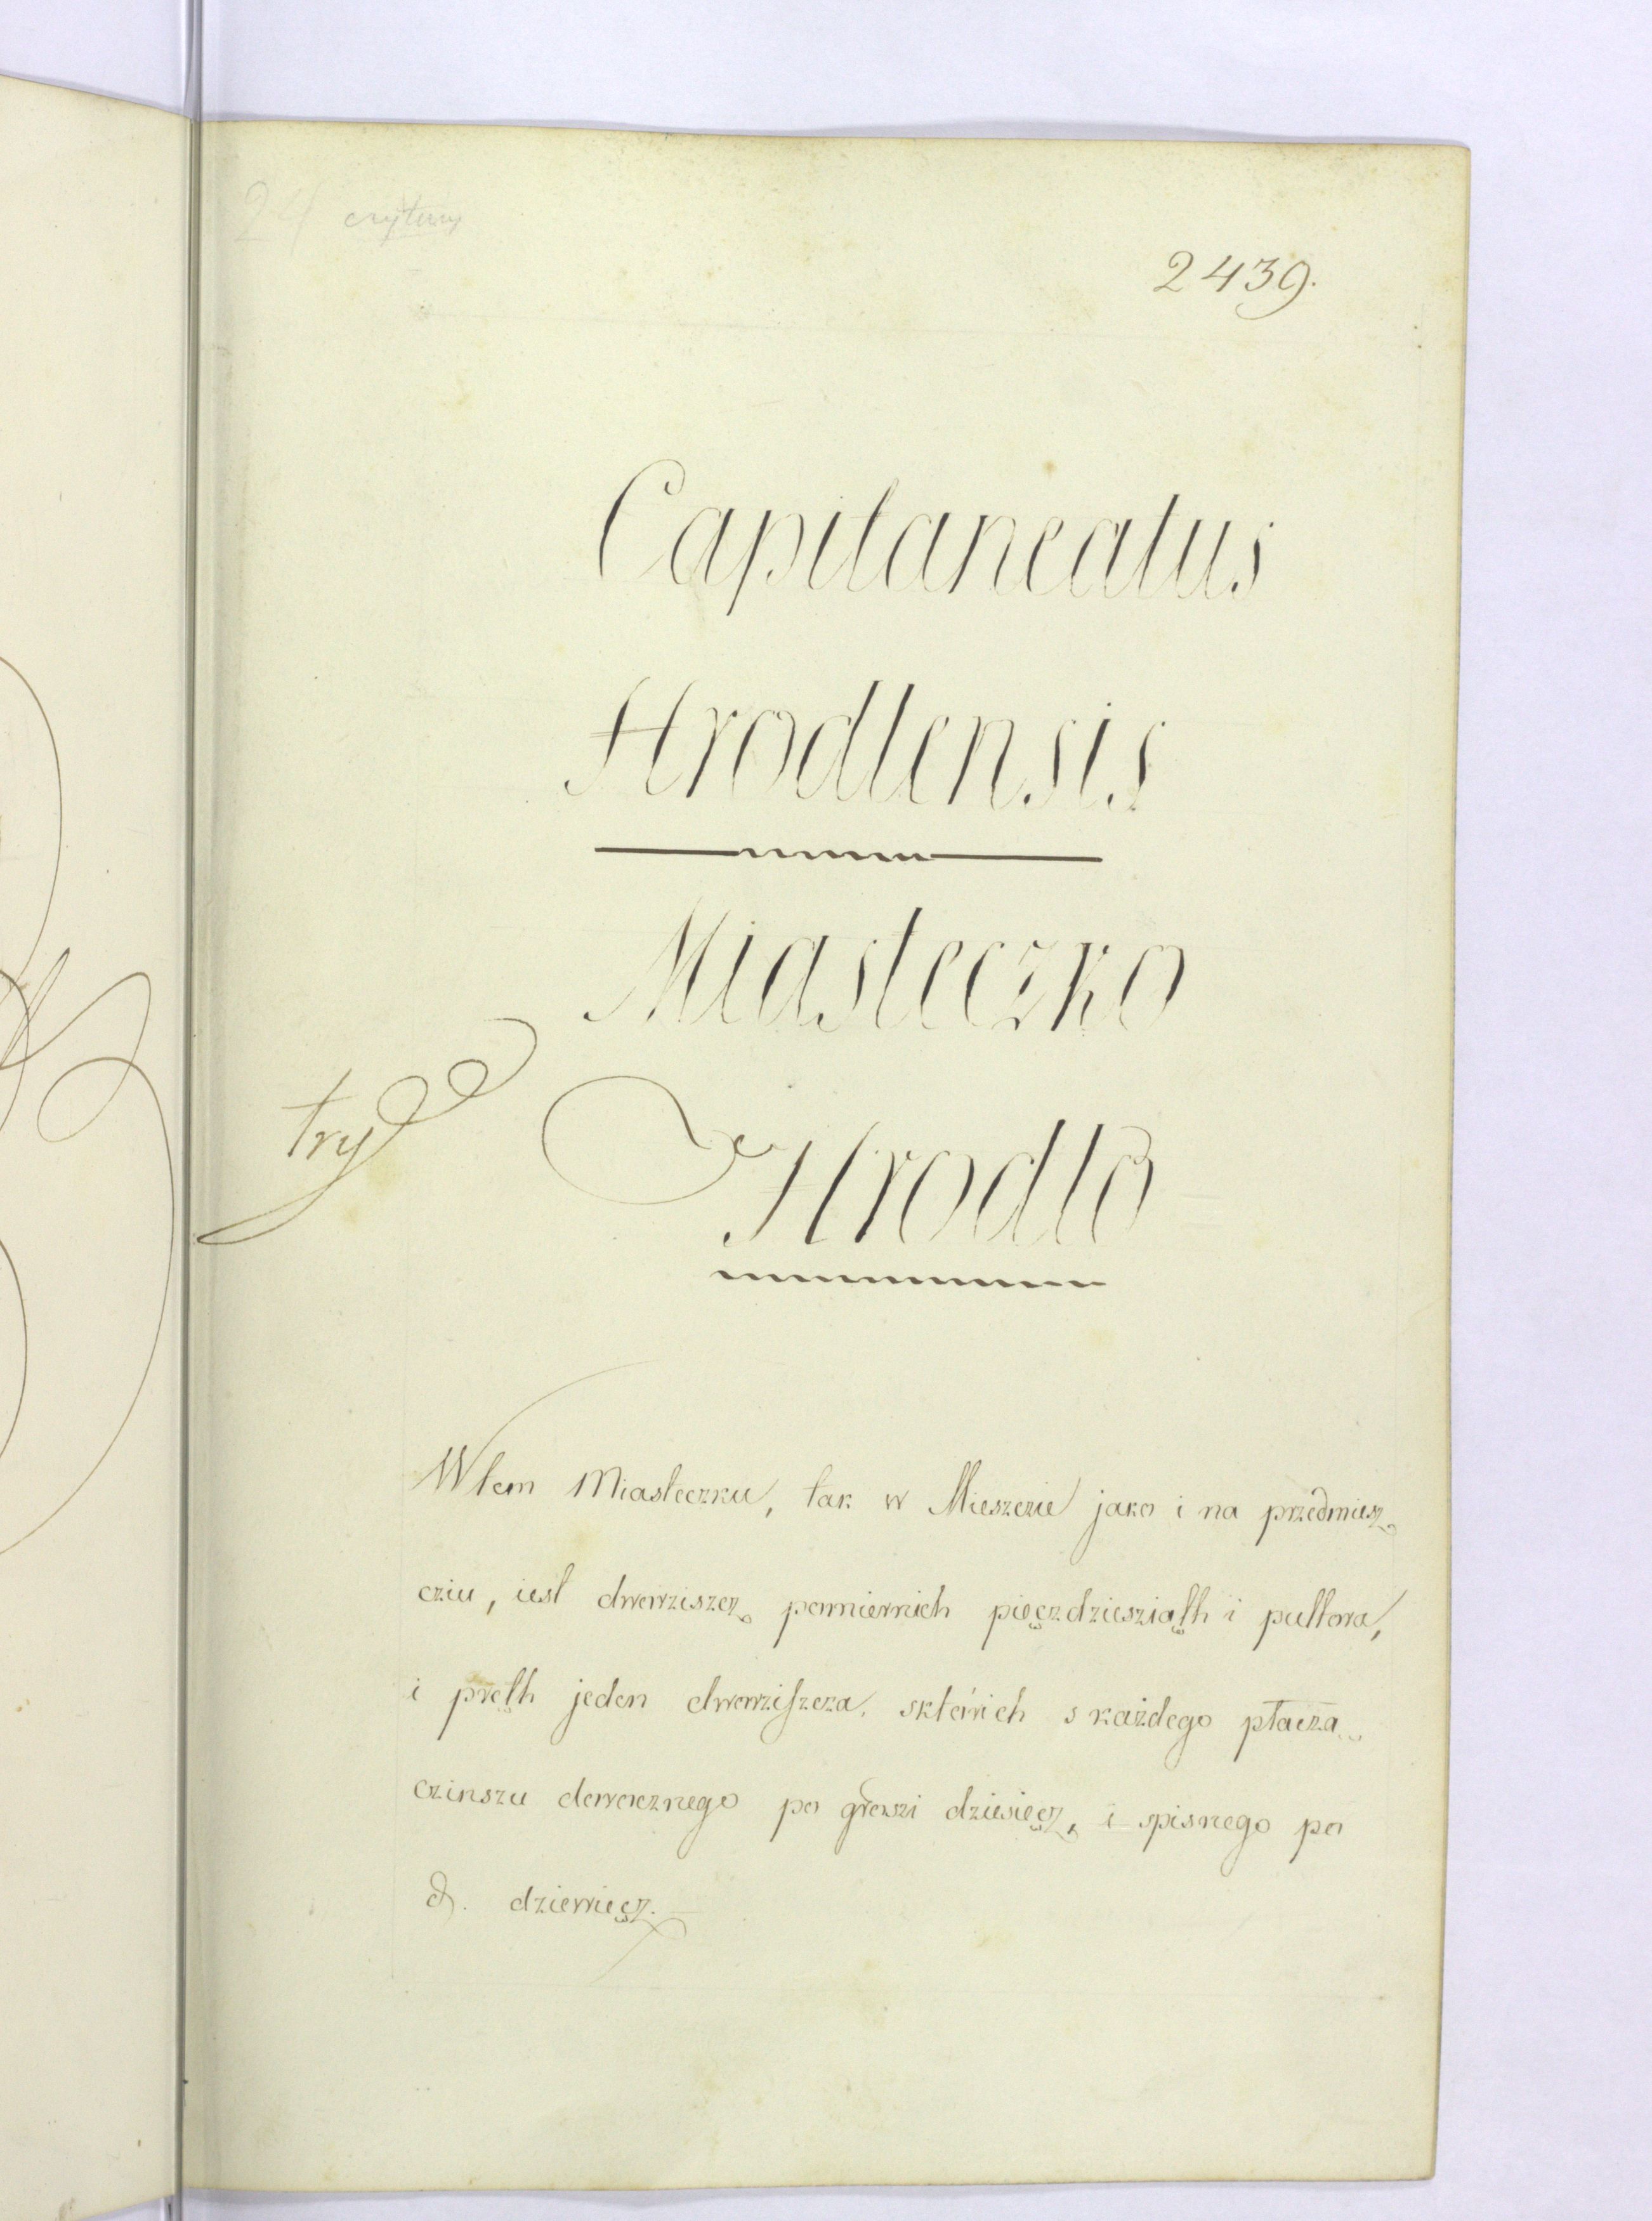 24 crytury
2439.
Capitaneatus
Hrodlensis
Miasteczko
try
Hrodło
W tem Miasteczku, tak w Mieszczie jako i na przedmiesz
cziu, iest dworziszcz pomiernich pięczdziesziąth i pułtora,
i pręth jeden dworziszcza, sktórich s każdego płaczą
czinszu dorocznego po groszi dziesięcz, i spisnego po
d. dziewięcz.